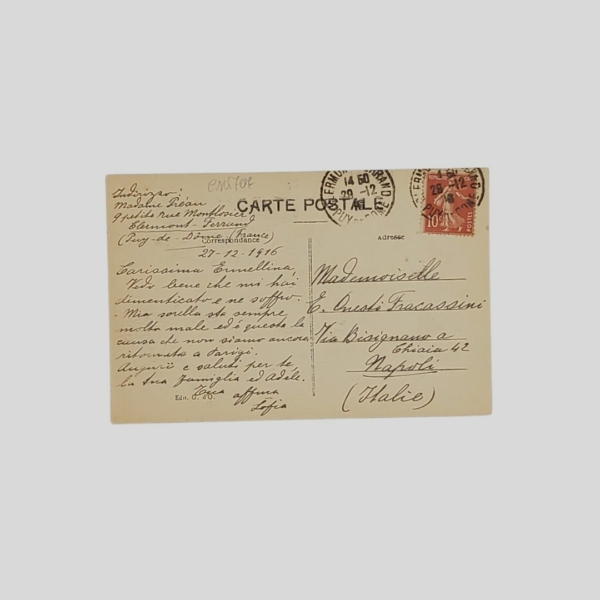 Indirizzo:
Madame Tréau
9 petite rue Montlosier
Clermont-Ferrand
(Puy-de-Dôme (France)
27-12-1916
Carissima Ermellina,
Vedo bene che mi hai
dimenticato e ne soffro.
Mia sorella sta sempre
molto male ed è questa la
causa che non siamo ancora
ritornata a Parigi.
Augurî e saluti per te
la tua famiglia ed Adéle.
Tua affma
Sofia
CARTE POSTALE
Correspondance
Adresse
Edit. G. d'O.
Mademoiselle
E. Onesti Fracassini
Via Bisignano a
Chiaia 42
Napoli
(Italie)
CLERMONT-FERRAND
14 50
29 -12
16
PUY-DE-DOME
29 -12
16
10
POSTES